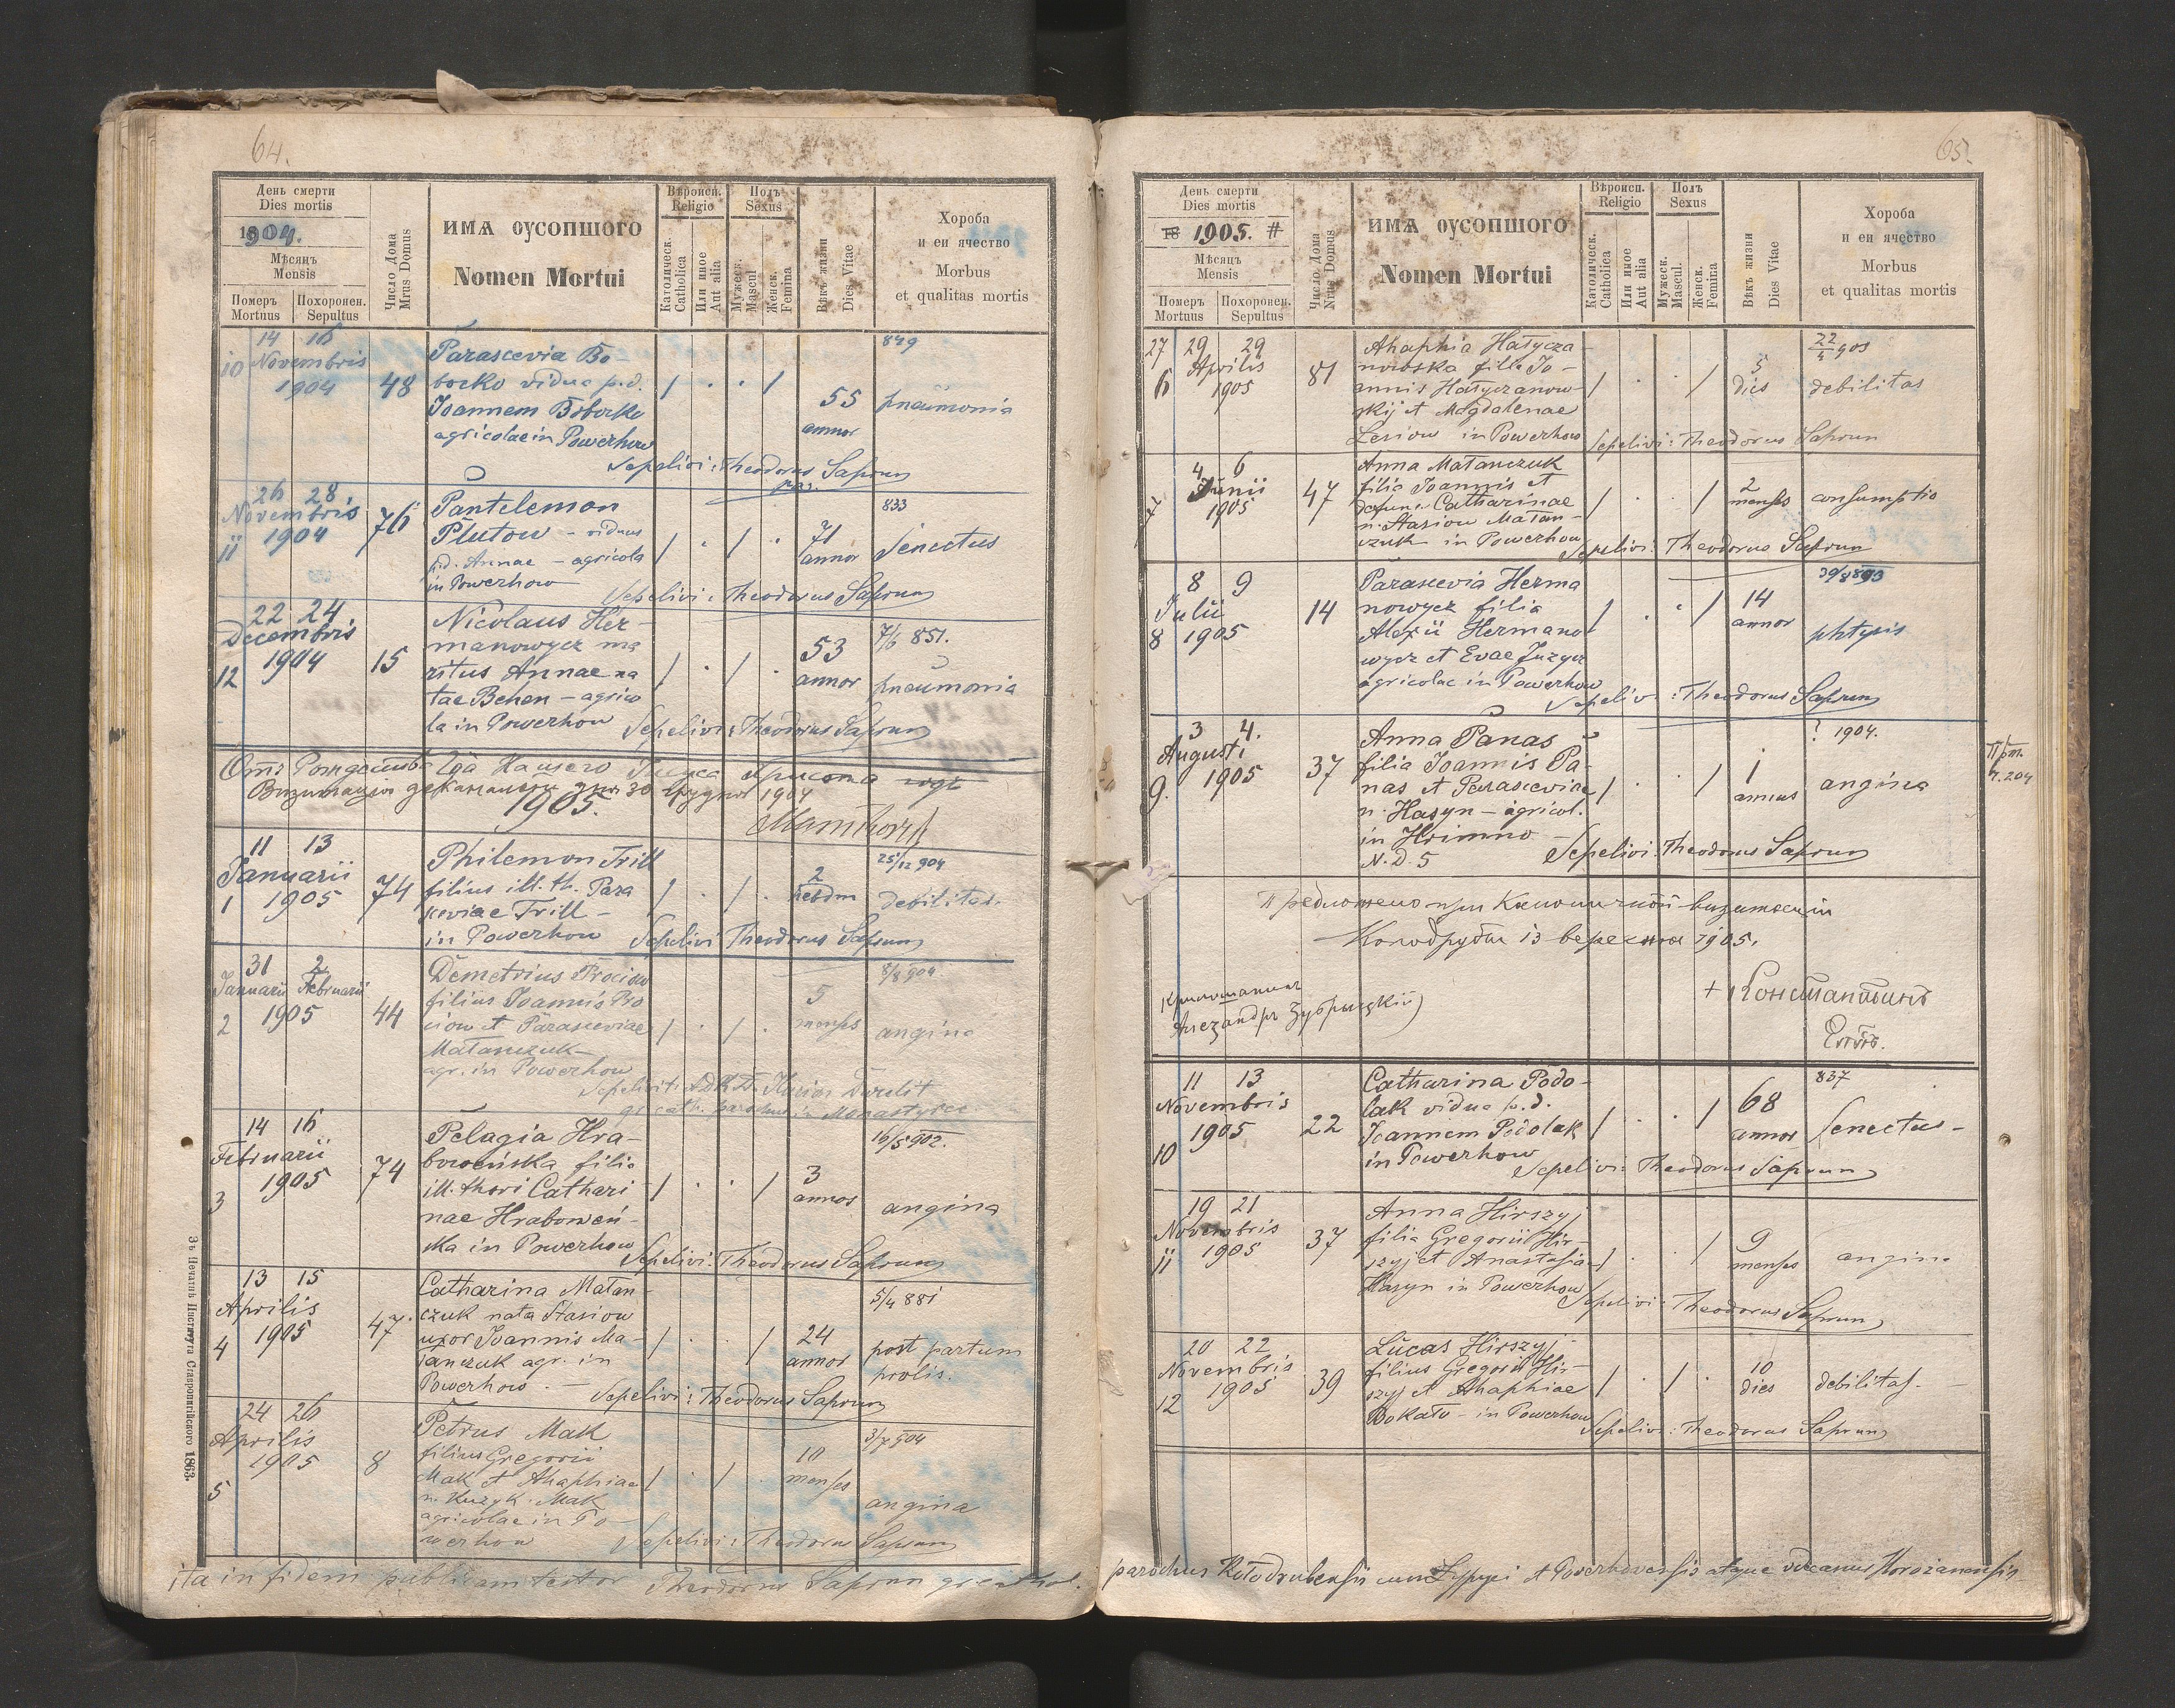 64.
День смерти
Dies mortis
1904.
Мѣсяцъ
Mensis
Померъ Похоронен.
Mortuus Sepultus
Число Дома
Mrus Domus
ИМѦ ОУСОПШОГО
Nomen Mortui
Вѣроисп.
Religio
Католическ.
Catholica
Или иное
Aut alia
Полъ
Sexus
Мужеск.
Mascul
Женск.
Femina
Вѣкъ жизни
Dies Vitae
Хороба
и еи ячество
Morbus
et qualitas mortis
14 16
10 Novembris
1904
48
Parascevia Bo-
borko vidua p.d.
Joannem Boborko
agricolae in Powerhow
/ . . /
55
annor
849
pneumonia
Sepelivi: Theodorus Saprun
par.
26 28
Novembris
11 1904
76
Pantelemon
Plutow - viduus
p.d. Annae - agricola
in Powerhow
/ . / .
71
annor
833
Senectus
Sepelivi: Theodorus Saprun
22 24
Decembris
12 1904
15
Nicolaus Her-
manowycz ma
ritus Annae na
tae Behen - agrico
la in Powerhow
/ . / .
53
annor
7/6 851.
pneumonia
Sepelivi: Theodorus Saprun
Отъ Рождества Гда Нашего Іисуса Христа
Визитація деканальна дня 30 грудня 1904
1905.
11 13
Januarii
1 1905
74
Philemon Trill
filius ill. th. Para
sceviae Trill -
in Powerhow
/ . / .
2
hebdm
25/12 904
debilitas.
Sepelivi Theodorus Saprun
31 2
Januarii Februarii
2 1905
44
Demetrius Prociow
filius Joannis Pro
ciow et Parasceviae
Matanczuk -
agr. in Powerhow
/ . / .
5
menses
8/8 904.
angina
gr. cath. parochus in Monastyrec
14 16
Februarii
3 1905
74
Pelagia Hra-
boweńska filia
ill. thori Cathari
nae Hraboweń-
ska in Powerhow
/ . . /
3
annos
16/5 902.
angina
Sepelivi: Theodorus Saprun
13 15
Aprilis
4 1905
47
Catharina Matan-
czuk nata Stasiow
uxor Joannis Ma-
tanczuk agr. in
Powerhow. -
/ . . /
24
annor
5/4 881
post partum
prolis.
Sepelivi: Theodorus Saprun
24 26
Aprilis
1905
5
8
Petrus Mak
filius Gregorii
Mak et Ahaphiae
n. Kuzyk. Mak
agricolae in Po-
werhow
/ . / .
10
menses
3/7 904
angina
Sepelivi: Theodorus Saprun
ita in fidem publicam testor Theodorus Saprun gr. cathol.
Зъ Печатнѣ Института Ставропигійского 1863.
65.
День смерти
Dies mortis
18 1905. #
Мѣсяцъ
Mensis
Померъ Похоронен.
Mortuus Sepultus
Число Дома
Nrus Domus
ИМѦ ОУСОПШОГО
Nomen Mortui
Вѣроисп.
Religio
Католическ.
Catholica
Или иное
Aut alia
Полъ
Sexus
Мужеск.
Mascul.
Женск.
Femina
Вѣкъ жизни
Dies Vitae
Хороба
и еи ячество
Morbus
et qualitas mortis
27 29 29
Aprilis
6 1905
81
Ahaphia Hałycza-
nowska filia Jo-
annis Hałyczanow-
skij et Magdalenae
Lesiow in Powerhow
/ . . /
5
dies
22/4 905
debilitas
Sepelivi: Theodorus Saprun
4 6
Junii
7 1905
47
Anna Matanczuk
filia Joannis et
defunc. Catharinae
n. Stasiow Matan-
czuk in Powerhow
/ . . /
2
menses
consumptio
Sepelivi: Theodorus Saprun
8 9
Julii
8 1905
14
Parascevia Herma
nowycz filia
Alexii Hermano
wycz et Evae Juzycz
agricolae in Powerhow
/ . . /
14
annor
30/8 893
phtysis
Sepelivi: Theodorus Saprun
3 4.
Augusti
9. 1905
37
Anna Panas
filia Joannis Pa-
nas et Parasceviae
n. Hasyn - agricol.
in Hrimno -
N. D. 5
/ . . /
1
annus
? 1904.
angina
Sepelivi: Theodorus Saprun
Предложено при Каноничной визитаціи
Колодрубы 13 вересня 1905.
Александръ Зубрыцкій
+ Константинъ
Епѣ.
11 13
Novembris
10 1905
22
Catharina Podo-
lak vidua p.d.
Joannem Podolak
in Powerhow
/ . . /
68
annor
837
senectus -
Sepelivi: Theodorus Saprun
19 21
Novembris
11 1905
37
Anna Hirszyj
filia Gregorii Hir-
szyj et Anastasiae
Hasyn in Powerhow
/ . . /
9
menses
angina
Sepelivi: Theodorus Saprun
20 22
Novembris
12 1905
39
Lucas Hirszyj
filius Gregorii Hir-
szyj et Ahaphiae
Bokało - in Powerhow
/ . / .
10
dies
debilitas. -
Sepelivi: Theodorus Saprun
parochus Kołodrubensis cum et Powerhovensis atque decanus Horożanensis